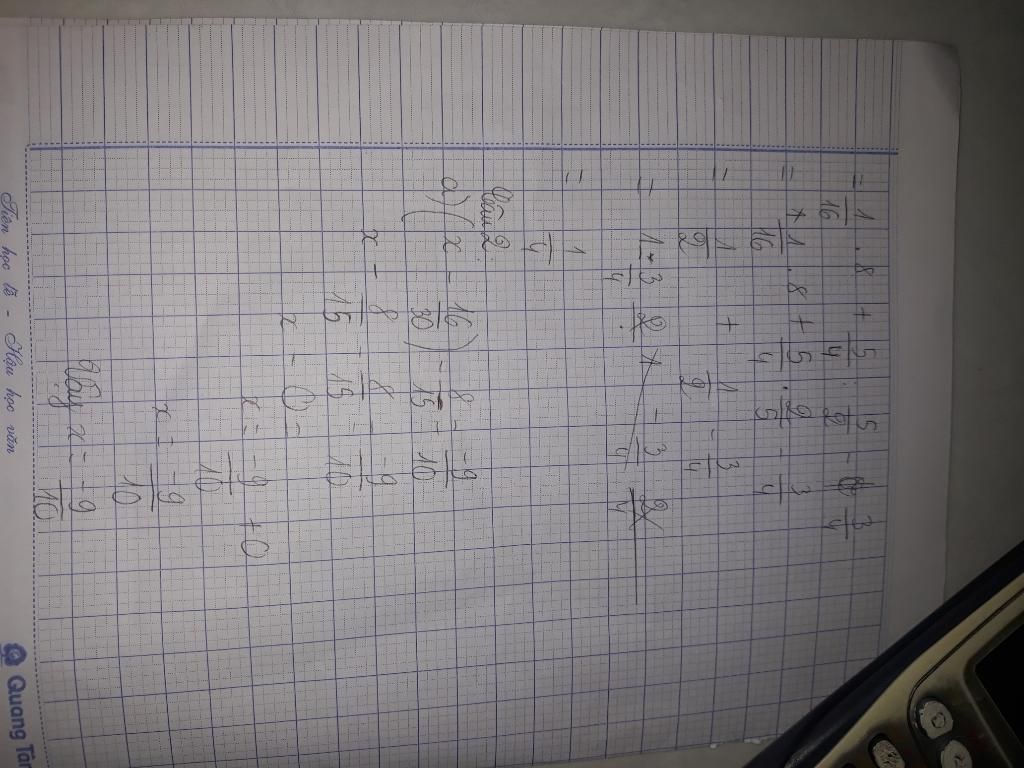 = 1/16 . 8 + 5/4 : 5/2 - 3/4
= 1/16 . 8 + 5/4 . 2/5 - 3/4
= 1/2 + 1/2 - 3/4
= 1 - 3/4
= 1/4
Câu 2:
a) (x - 16/30) - 8/15 = -9/10
x - 8/15 - 8/15 = -9/10
x - 0 = -9/10
x = -9/10 + 0
x = -9/10
Vậy x = -9/10
Tiên học lễ - Hậu học văn
Quang